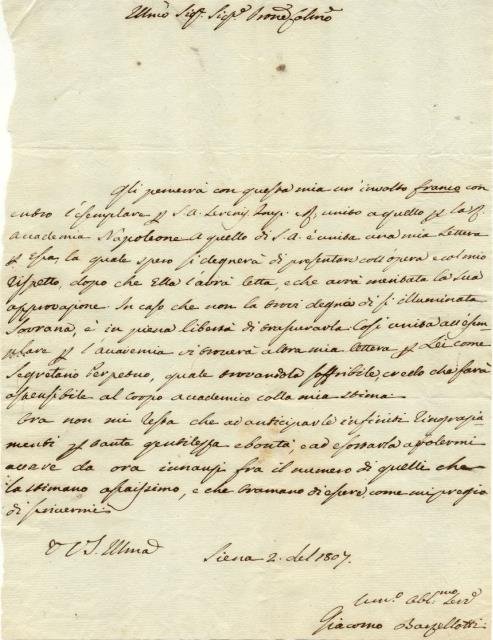 Illmo Sig.r Sig.r Prone Colmo
Gli perverrà con questa mia un' involto franco con
entro l'esemplare p S. A. Sereniss. Imp. e R. unito a quello p la R.
Accademia Napoleone. A quello di S. A. è unita una mia Lettera
p Essa, la quale spero si degnerà di presentare coll'opera e col mio
rispetto, dopo che Ella l'avrà letta, e che avrà meritata la sua
approvazione. In caso che non la trovi degna di sì illuminata
Sovrana, è in piena libertà di trascurarla. Così unita all'esem-
plare p l'accademia vi troverà altra mia lettera p Lei come
Segretario Perpetuo, quale trovandola soffribile, credo che sarà
ostensibile al corpo accademico colla mia stima
Ora non mi resta che ad anticiparle infiniti ringrazia
menti p tanta gentilezza e bontà; e ad esortarla a volermi
avere da ora innanzi fra il numero di quelli che
la stimano assaissimo, e che bramano di essere, come mi pregio
di scrivermi
D V S. Illma
Siena 2. del 1807.
Um.o Obb.mo Ser.e
Giacomo Barzellotti